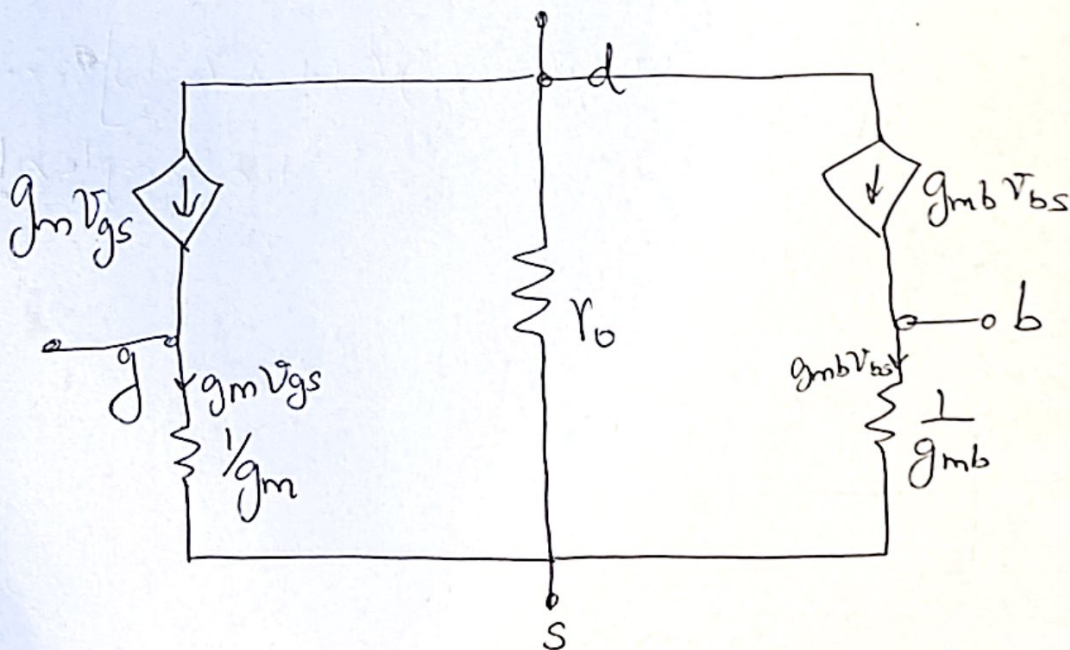 d
g_m v_gs
g_mb v_bs
r_o
b
g
g_m v_gs
g_mb v_bs
1/g_m
1/g_mb
s